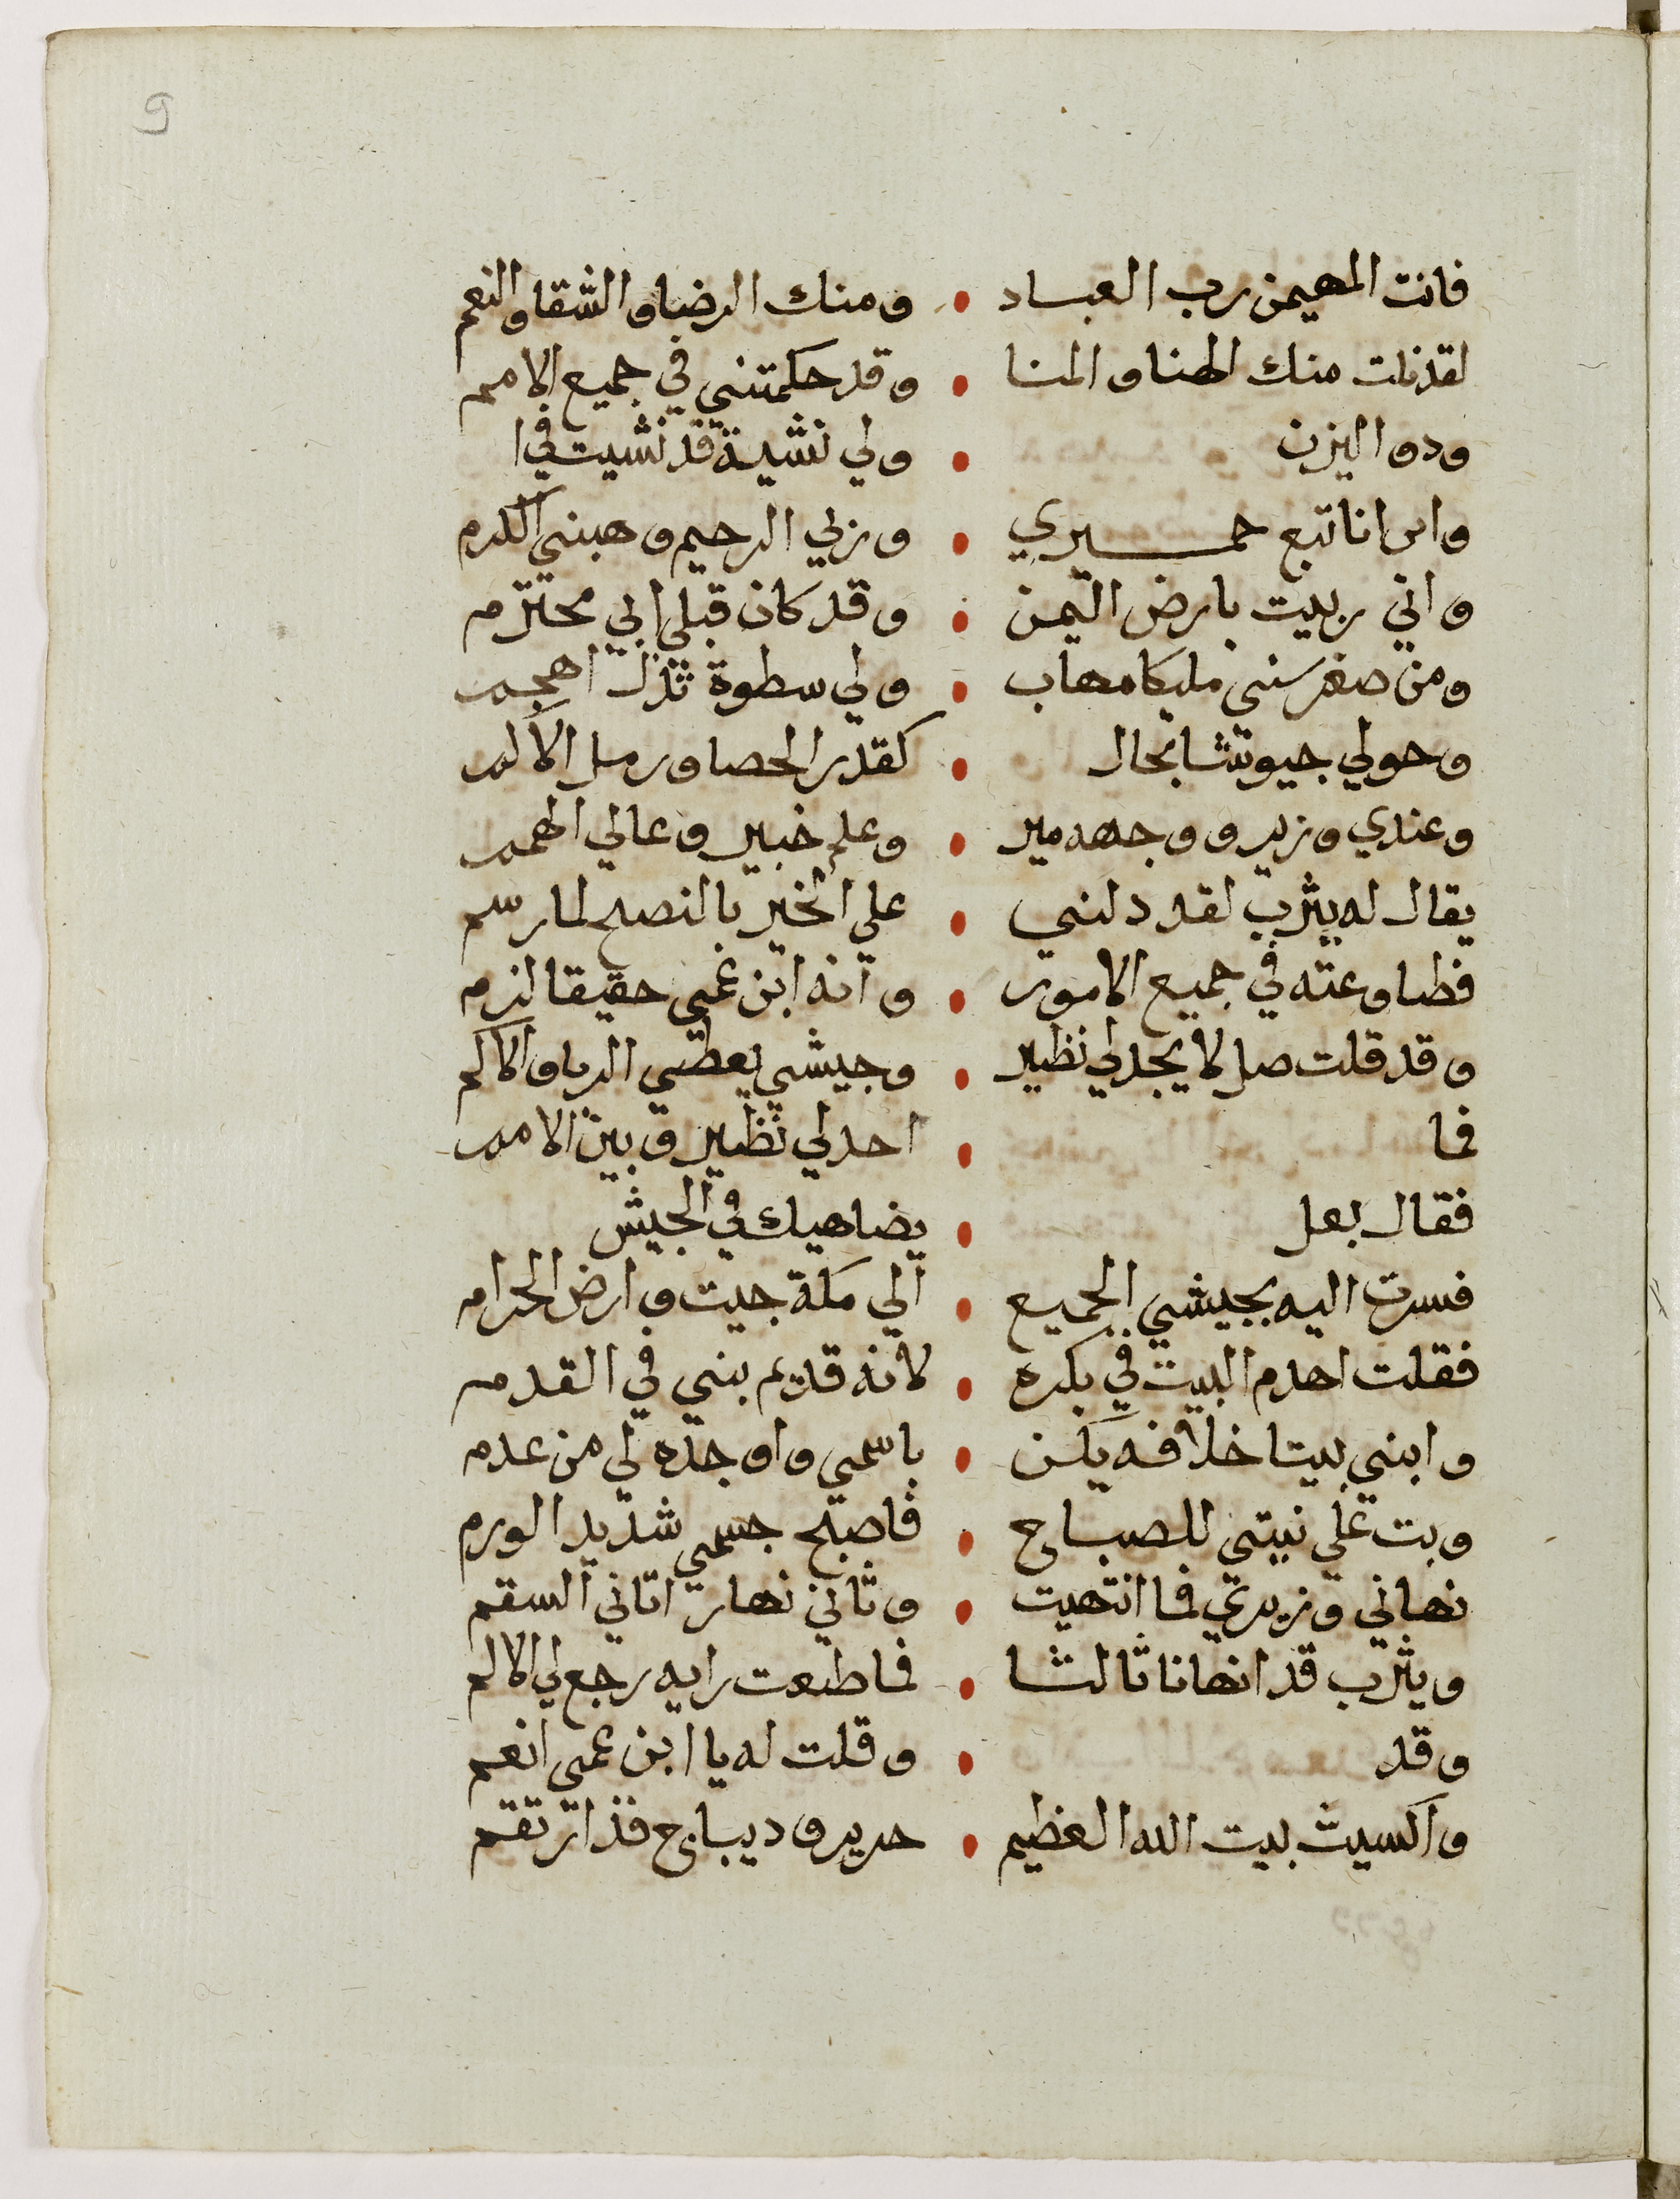 فانت المهيمن رب العباد • ومنك الرضا والشقا والنعم
لقد نلت منك الهنا والمنا • وقد حكمتني في جميع الامم
ودو اليزن • ولي نشية قد نشيت في ا
وان انا تبع حميري • وربي الرحيم وهبني الكرم
واني ربيت بارض اليمن • وقد كان قبلي ابي محترم
ومن صغر سني مليكا مهاب • ولي سطوة تذل
وحولي جيوشا بحال • كقدر الحصا ورمل الاكم
وعندي وزير ووجهه مير • وعلم خبير وعالي الهمم
يقال له يثرب لقد دلني • علي الخير بالنصح لما رسم
فطاوعته في جميع الامور • وانه ابن عمي حقيقا لزم
وقد قلت هل لا يجد لي نظير • وجيشي يغطي الربا والاكم
فما • احد لي نظير وبين الامم
فقال بعل • يضاهيك في الجيش
فسرت اليه بجيشي الجميع • الي مكة جيت وارض الحرام
فقلت اهدم البيت في بكره • لانه قديم بني في القدم
وابني بيتا خلافه يكن • باسمي واوجده لي من عدم
وبت علي نيتي للصباح • فاصبح جسمي شديد الورم
نهاني وزيري فما انتهيت • وثاني نهار اتاني السقم
ويثرب قد انهانا ثالثا • فما طعت رايه رجع لي الالم
وقد • وقلت له يا ابن عمي انعم
واكسيت بيت الله العظيم • حرير وديباج قد ارتقم